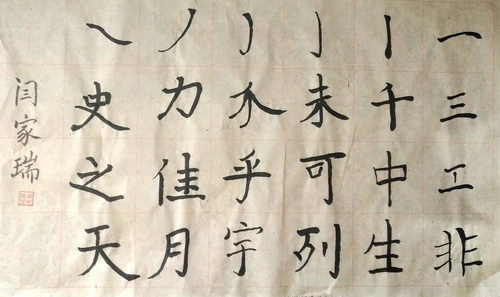 一三工非
丨千中生
亅未可列
乎宇
丿力佳月
㇏史之天
闫家瑞